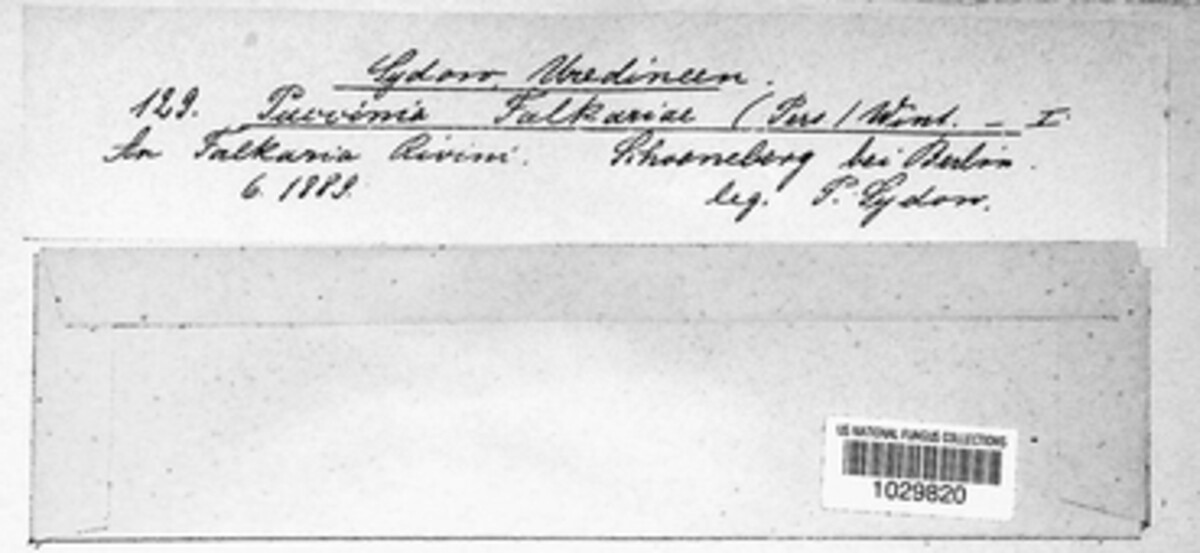 Sydow, Uredineen.
129. Puccinia Falkariae (Pers) Wint. – I.
An Falkaria Rivini. Schoeneberg bei Berlin.
6. 1889. leg. P. Sydow.
US NATIONAL FUNGUS COLLECTIONS
1029820